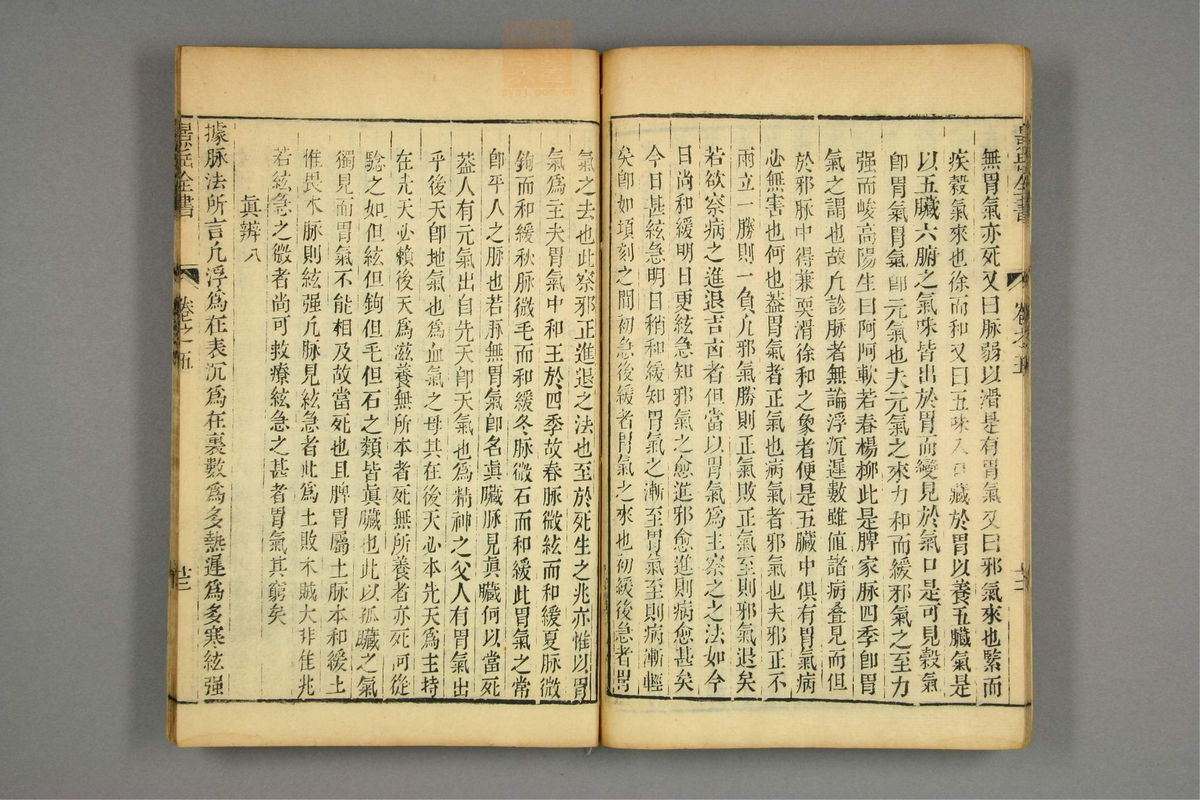 無胃氣亦死又曰脉弱以滑是有胃氣又曰邪氣來也緊而
疾穀氣來也徐而和又曰五味入口藏於胃以養五臟氣是
以五臟六腑之氣味皆出於胃而變見於氣口是可見穀氣
卽胃氣胃氣卽元氣也夫元氣之來力和而緩邪氣之至力
强而峻高陽生曰阿阿軟若春楊柳此是脾家脉四季卽胃
氣之謂也故凢診脉者無論浮沉遲數雖值諸病叠見而但
於邪脉中得兼耎滑徐和之象者便是五臟中俱有胃氣病
必無害也何也葢胃氣者正氣也病氣者邪氣也夫邪正不
兩立一勝則一負凢邪氣勝則正氣敗正氣至則邪氣退矣
若欲察病之進退吉凶者但當以胃氣爲主察之之法如今
日尚和緩明日更絃急知邪氣之愈進邪愈進則病愈甚矣
今日甚絃急明日稍和緩知胃氣之漸至胃氣至則病漸輕
矣卽如頃刻之間初急後緩者胃氣之來也初緩後急者胃
氣之去也此察邪正進退之法也至於死生之兆亦惟以胃
氣爲主夫胃氣中和王於四季故春脉微絃而和緩夏脉微
鉤而和緩秋脉微毛而和緩冬脉微石而和緩此胃氣之常
卽平人之脉也若脉無胃氣卽名眞臟脉見眞臟何以當死
葢人有元氣出自先天卽天氣也爲精神之父人有胃氣出
乎後天卽地氣也爲血氣之母其在後天必本先天爲主持
在先天必賴後天爲滋養無所本者死無所養者亦死何從
騐之如但絃但鉤但毛但石之類皆眞臟也此以孤臟之氣
獨見而胃氣不能相及故當死也且脾胃屬土脉本和緩土
惟畏木脉則絃强凢脉見絃急者此爲土敗木賊大非佳兆
若絃急之微者尚可救療絃急之甚者胃氣其窮矣
眞辨 八
據脉法所言凢浮爲在表沉爲在裏數爲多熱遲爲多寒絃强
景岳全書
卷之五